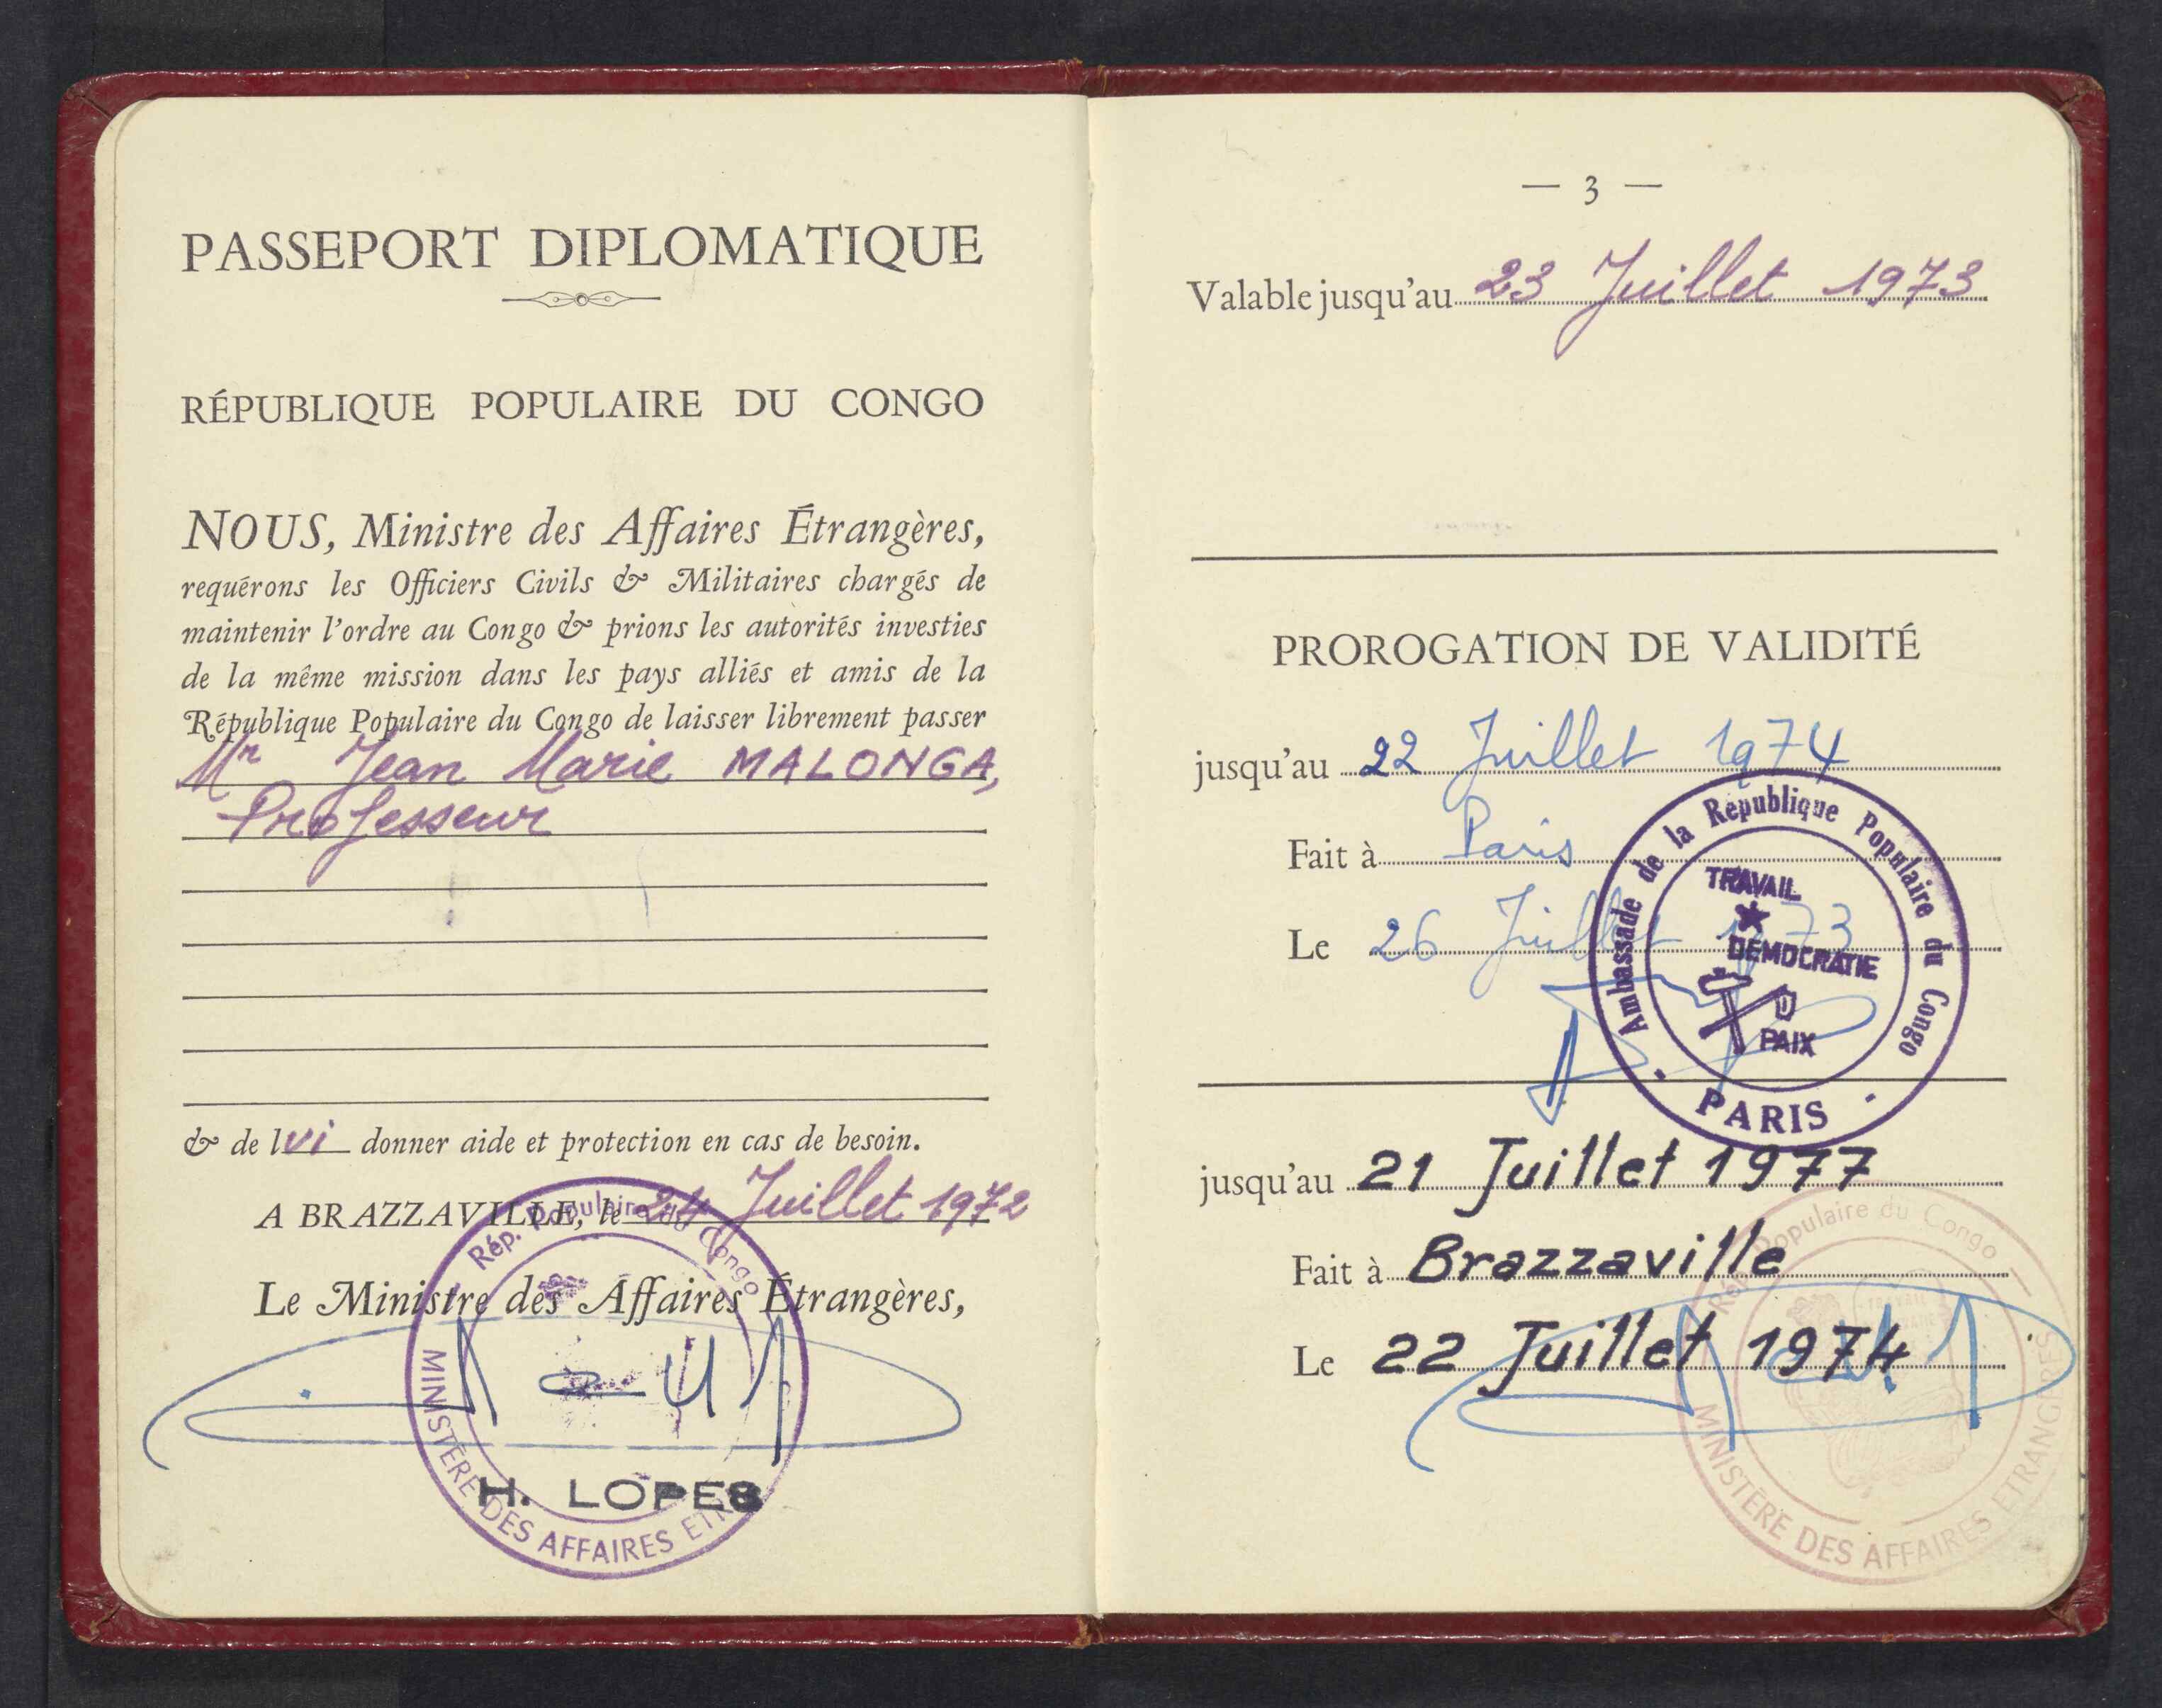 PASSEPORT DIPLOMATIQUE
RÉPUBLIQUE POPULAIRE DU CONGO
NOUS, Ministre des Affaires Étrangères,
requérons les Officiers Civils & Militaires chargés de
maintenir l'ordre au Congo & prions les autorités investies
de la même mission dans les pays alliés et amis de la
République Populaire du Congo de laisser librement passer
Mr Jean Marie MALONGA,
Professeur
& de lui donner aide et protection en cas de besoin.
A BRAZZAVILLE, le 24 Juillet 1972
Le Ministre des Affaires Étrangères,
H. LOPES
Rép. Populaire du Congo
MINISTÈRE DES AFFAIRES ETR
— 3 —
Valable jusqu'au 23 Juillet 1973
PROROGATION DE VALIDITÉ
jusqu'au 22 Juillet 1974
Fait à Paris
Le 26 Juillet 1973
Ambassade de la République Populaire du Congo
TRAVAIL
DEMOCRATIE
PAIX
PARIS
jusqu'au 21 Juillet 1977
Fait à Brazzaville
Le 22 Juillet 1974
Rép. Populaire du Congo
MINISTÈRE DES AFFAIRES ETRANGÈRES